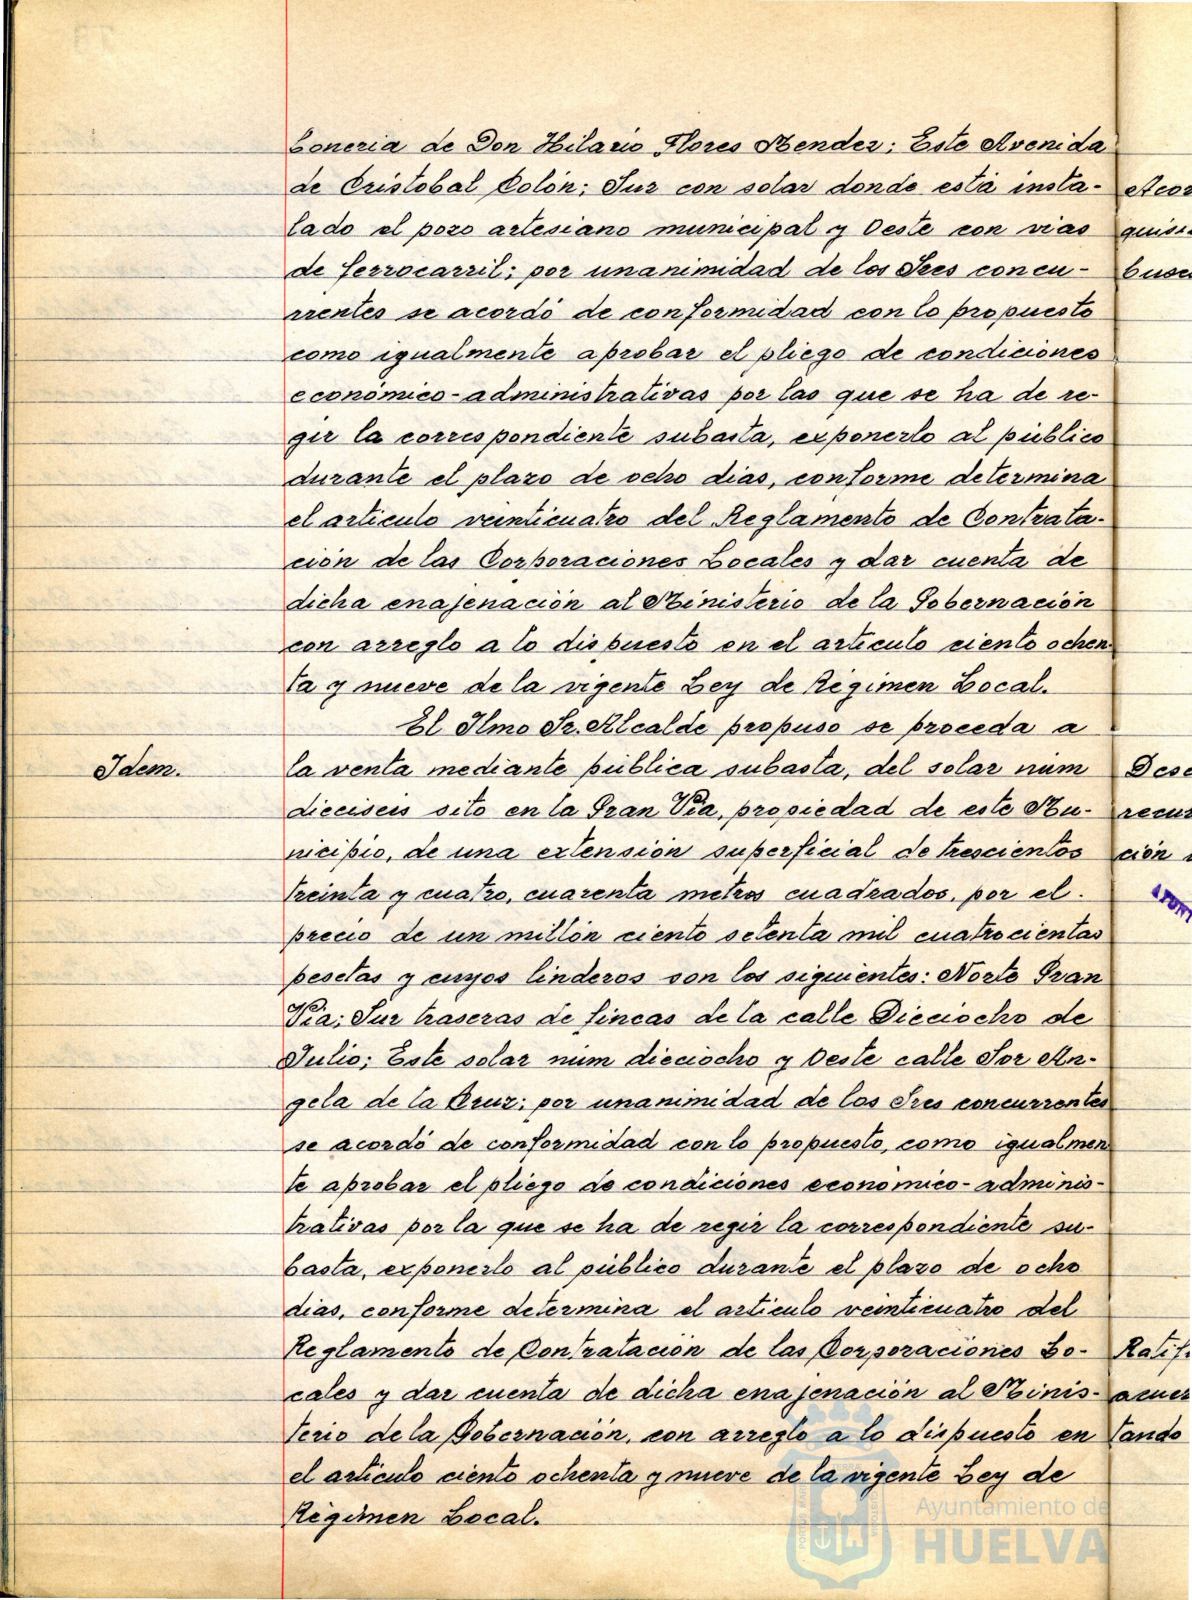 boneria de Don Hilario Flores Mendez; Este Avenida
de Cristobal Colón; Sur con solar donde está insta-
lado el pozo artesiano municipal y Oeste con vias
de ferrocarril; por unanimidad de los Sres concu-
rrentes se acordó de conformidad con lo propuesto
como igualmente aprobar el pliego de condiciones
económico-administrativas por las que se ha de re-
gir la correspondiente subasta, exponerlo al público
durante el plazo de ocho dias, conforme determina
el articulo veinticuatro del Reglamento de Contrata-
ción de las Corporaciones Locales y dar cuenta de
dicha enajenación al Ministerio de la Gobernación
con arreglo a lo dispuesto en el articulo ciento ochen
ta y nueve de la vigente Ley de Régimen Local.
El Ilmo Sr. Alcalde propuso se proceda a
Idem.
la venta mediante pública subasta, del solar núm
dieciseis sito en la Gran Via, propiedad de este Mu-
nicipio, de una extensión superficial de trescientos
treinta y cuatro, cuarenta metros cuadrados, por el
precio de un millón ciento setenta mil cuatrocientas
pesetas y cuyos linderos son los siguientes: Norte Gran
Via; Sur traseras de fincas de la calle Dieciocho de
Julio; Este solar núm dieciocho y Oeste calle Sor An-
gela de la Cruz; por unanimidad de los Sres concurrentes
se acordó de conformidad con lo propuesto, como igualmen
te aprobar el pliego de condiciones económico-adminis-
trativas por la que se ha de regir la correspondiente su-
basta, exponerlo al público durante el plazo de ocho
dias, conforme determina el articulo veinticuatro del
Reglamento de Contratación de las Corporaciones Lo-
cales y dar cuenta de dicha enajenación al Minis-
terio de la Gobernación, con arreglo a lo dispuesto en
el articulo ciento ochenta y nueve de la vigente Ley de
Régimen Local.
Ayuntamiento de
HUELVA
tando
ción